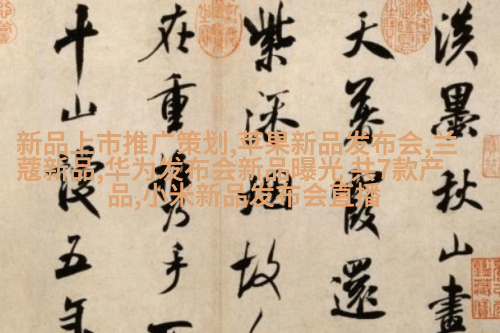 新品上市推广策划,苹果新品发布会,兰
蔻新品,华为发布会新品曝光,共7款产
品,小米新品发布会直播
淡墨秋山畫
天暮霞還
紫添烟故
在重攜手
平山謾五年